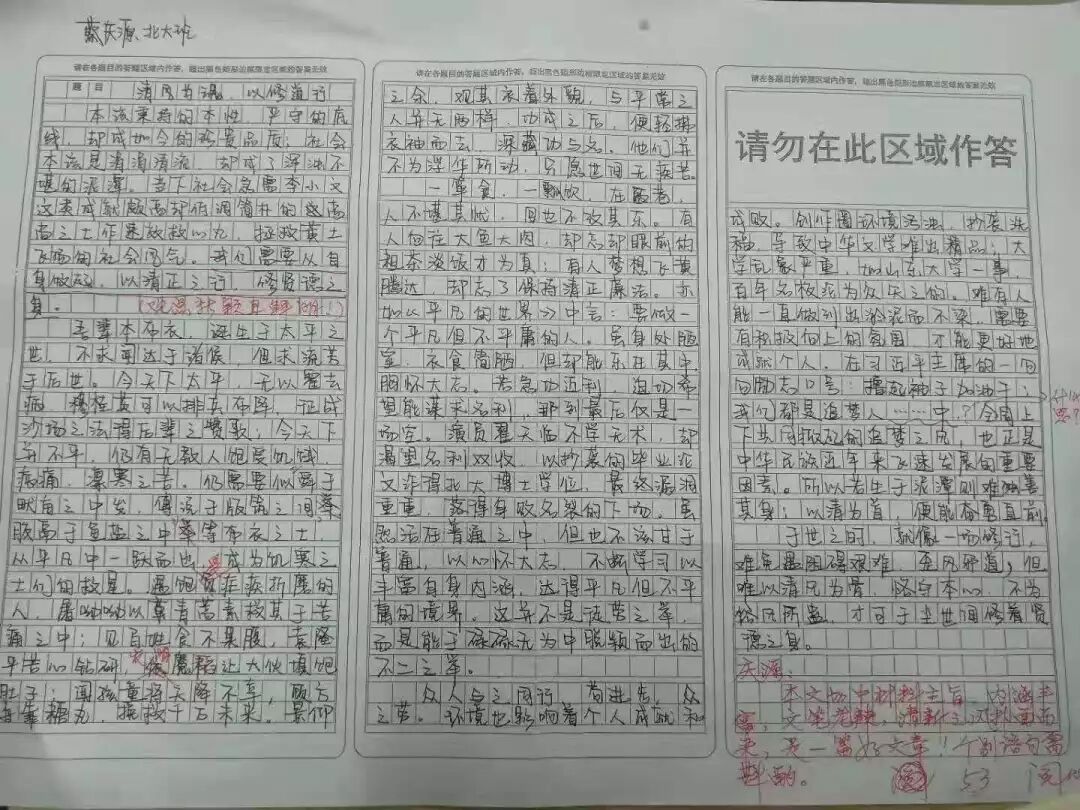 蔡庆源 北大班
请在各题目的答题区域内作答，超出黑色矩形边框限定区域的答案无效
题 目 清风为魂，以修道行
本该秉持的本性，严守的底
线，却成如今的珍贵品质；社会
本该是清澈清流，却成了浑浊不
堪的泥潭。当下社会急需李小文
这类成就颇高却低调简朴的
尚之士作
的社会风气。我们需要从自
身做起，以清正之行，修贤德之
身。
吾辈本布衣，诞生于太平之
世，不求闻达于诸侯，但求流芳
于后世。今天下太平，无以霍去
病、穆桂英可以排兵布阵，征战
沙场之法得后辈之赞歌；今天下
并不平，仍有无数人饱受饥饿、
病痛、寒寒之苦。仍需要似舜于
畎亩之中发，傅说于版筑之间，
胶鬲于鱼盐之中举等布衣之士，
从平凡中一跃而出，成为饥寒之
士们的救星。遇饱受症疾折磨的
人，屠呦呦以青蒿素救其于苦
痛之中；见百姓食不果腹，袁隆
平苦心钻研，让大伙填饱
肚子；闻孩童将天降不幸，顾方
舟靠糖丸，拯救千万未来。景仰
请在各题目的答题区域内作答，超出黑色矩形边框限定区域的答案无效
之余，观其衣着外貌，与平常之
人并无两样，功成之后，便轻拂
衣袖而去，深藏功与名。他们并
不为浮华所动，只愿世间无疾苦。
一箪食，一瓢饮，在陋巷，
人不堪其忧，回也不改其乐。有
人向往大鱼大肉，却忘却眼前的
粗茶淡饭才为真；有人梦想飞黄
腾达，却忘了保持清正廉洁。亦
如《平凡的世界》中言：要做一
个平凡但不平庸的人。虽身处陋
室，衣食简陋，但却能乐在其中，
胸怀大志。若急功近利，迫切希
望能谋求名利，那到最后仅是一
场空。演员翟天临不学无术，却
渴望名利双收，以抄袭的毕业论
文诈得北大博士学位，最终漏洞
重重，落得身败名裂的下场。虽
然活在普通之中，但也不该甘于
普通，以心怀大志，不断学习以
丰富自身内涵，达得平凡但不平
庸的境界。这并不是徒劳之举，
而是能于碌碌无为中脱颖而出的
不二之举。
众人与之同行，苟进步，众
之劳。环境也影响着个人成就和
请在各题目的答题区域内作答，超出黑色矩形边框限定区域的答案无效
请勿在此区域作答
成败。创作圈环境污浊，抄袭洗
稿，导致中华文学难出精品；大
学乱象严重，如山东大学一事，
百年名校沦为众矢之的。难有人
能一直做到出淤泥而不染，需要
有积极向上的氛围，才能更好地
成就个人。在习近平主席的一句
句励志口号：撸起袖子加油干；
我们都是追梦人……中，全国上
下共同掀起的追梦之风，也正是
中华民族近年来飞速发展的重要
因素。所以若生于泥潭则难独善
其身；以清为首，便能奋勇直前。
于世之间，就像一场修行，
难免遇阻碍艰难，歪风邪道；但
唯以清风为骨，恪守本心，不为
俗风所蛊，才可于尘世间修着贤
德之身。
庆源：
本文切中材料主旨，内涵丰
富，文笔老辣，清新之风扑面而
来，是一篇好文章！个别语句需
斟酌。
53